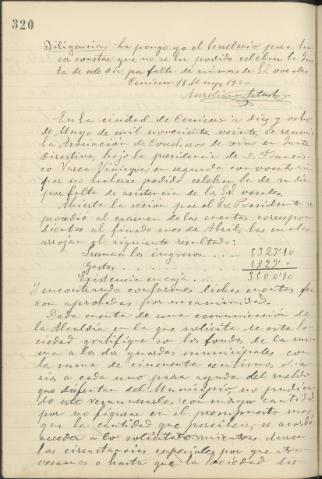 320
Diligencia, la pongo yo el Secretario para ha-
cer constar que no se ha podido celebrar la Jun-
ta de este dia por falta de número de S.S. vocales
Cenicero 16 Mayo 1920
En la ciudad de Cenicero a diez y ocho
de Mayo de mil novecientos veinte, se reunió
la Asociación de Cosecheros de vino en Junta
Directiva, bajo la presidencia de D. Francis-
co en segunda convocatoria
por no haberse podido celebrar la de su dia
por falta de asistencia de los Srs. vocales.
Abierta la sesión por el Sr. Presidente se
procedió al examen de las cuentas correspon-
dientes al finado mes de Abril, las cuales
arrojan el siguiente resultado:
Suman los ingresos
Gastos
Existencia en caja
Y encontrando conformes dichas cuentas fue-
ron aprobadas por unanimidad.
Dada cuenta de una comunicación de
la Alcaldía en la que solicita de esta So-
ciedad gratifique con los fondos de la mis-
ma a los dos guardas municipales con
la suma de cincuenta centimos dia-
rios cada uno para ayuda del sueldo
que disfrutan del Municipio no pudien-
do este remunerarles con mayor cantidad
por no figurar en el presupuesto mas
que la cantidad que perciben, se acordó
acceda a lo solicitado mientras duren
las circunstancias especiales por que atra-
vesamos o hasta que la Sociedad dis-